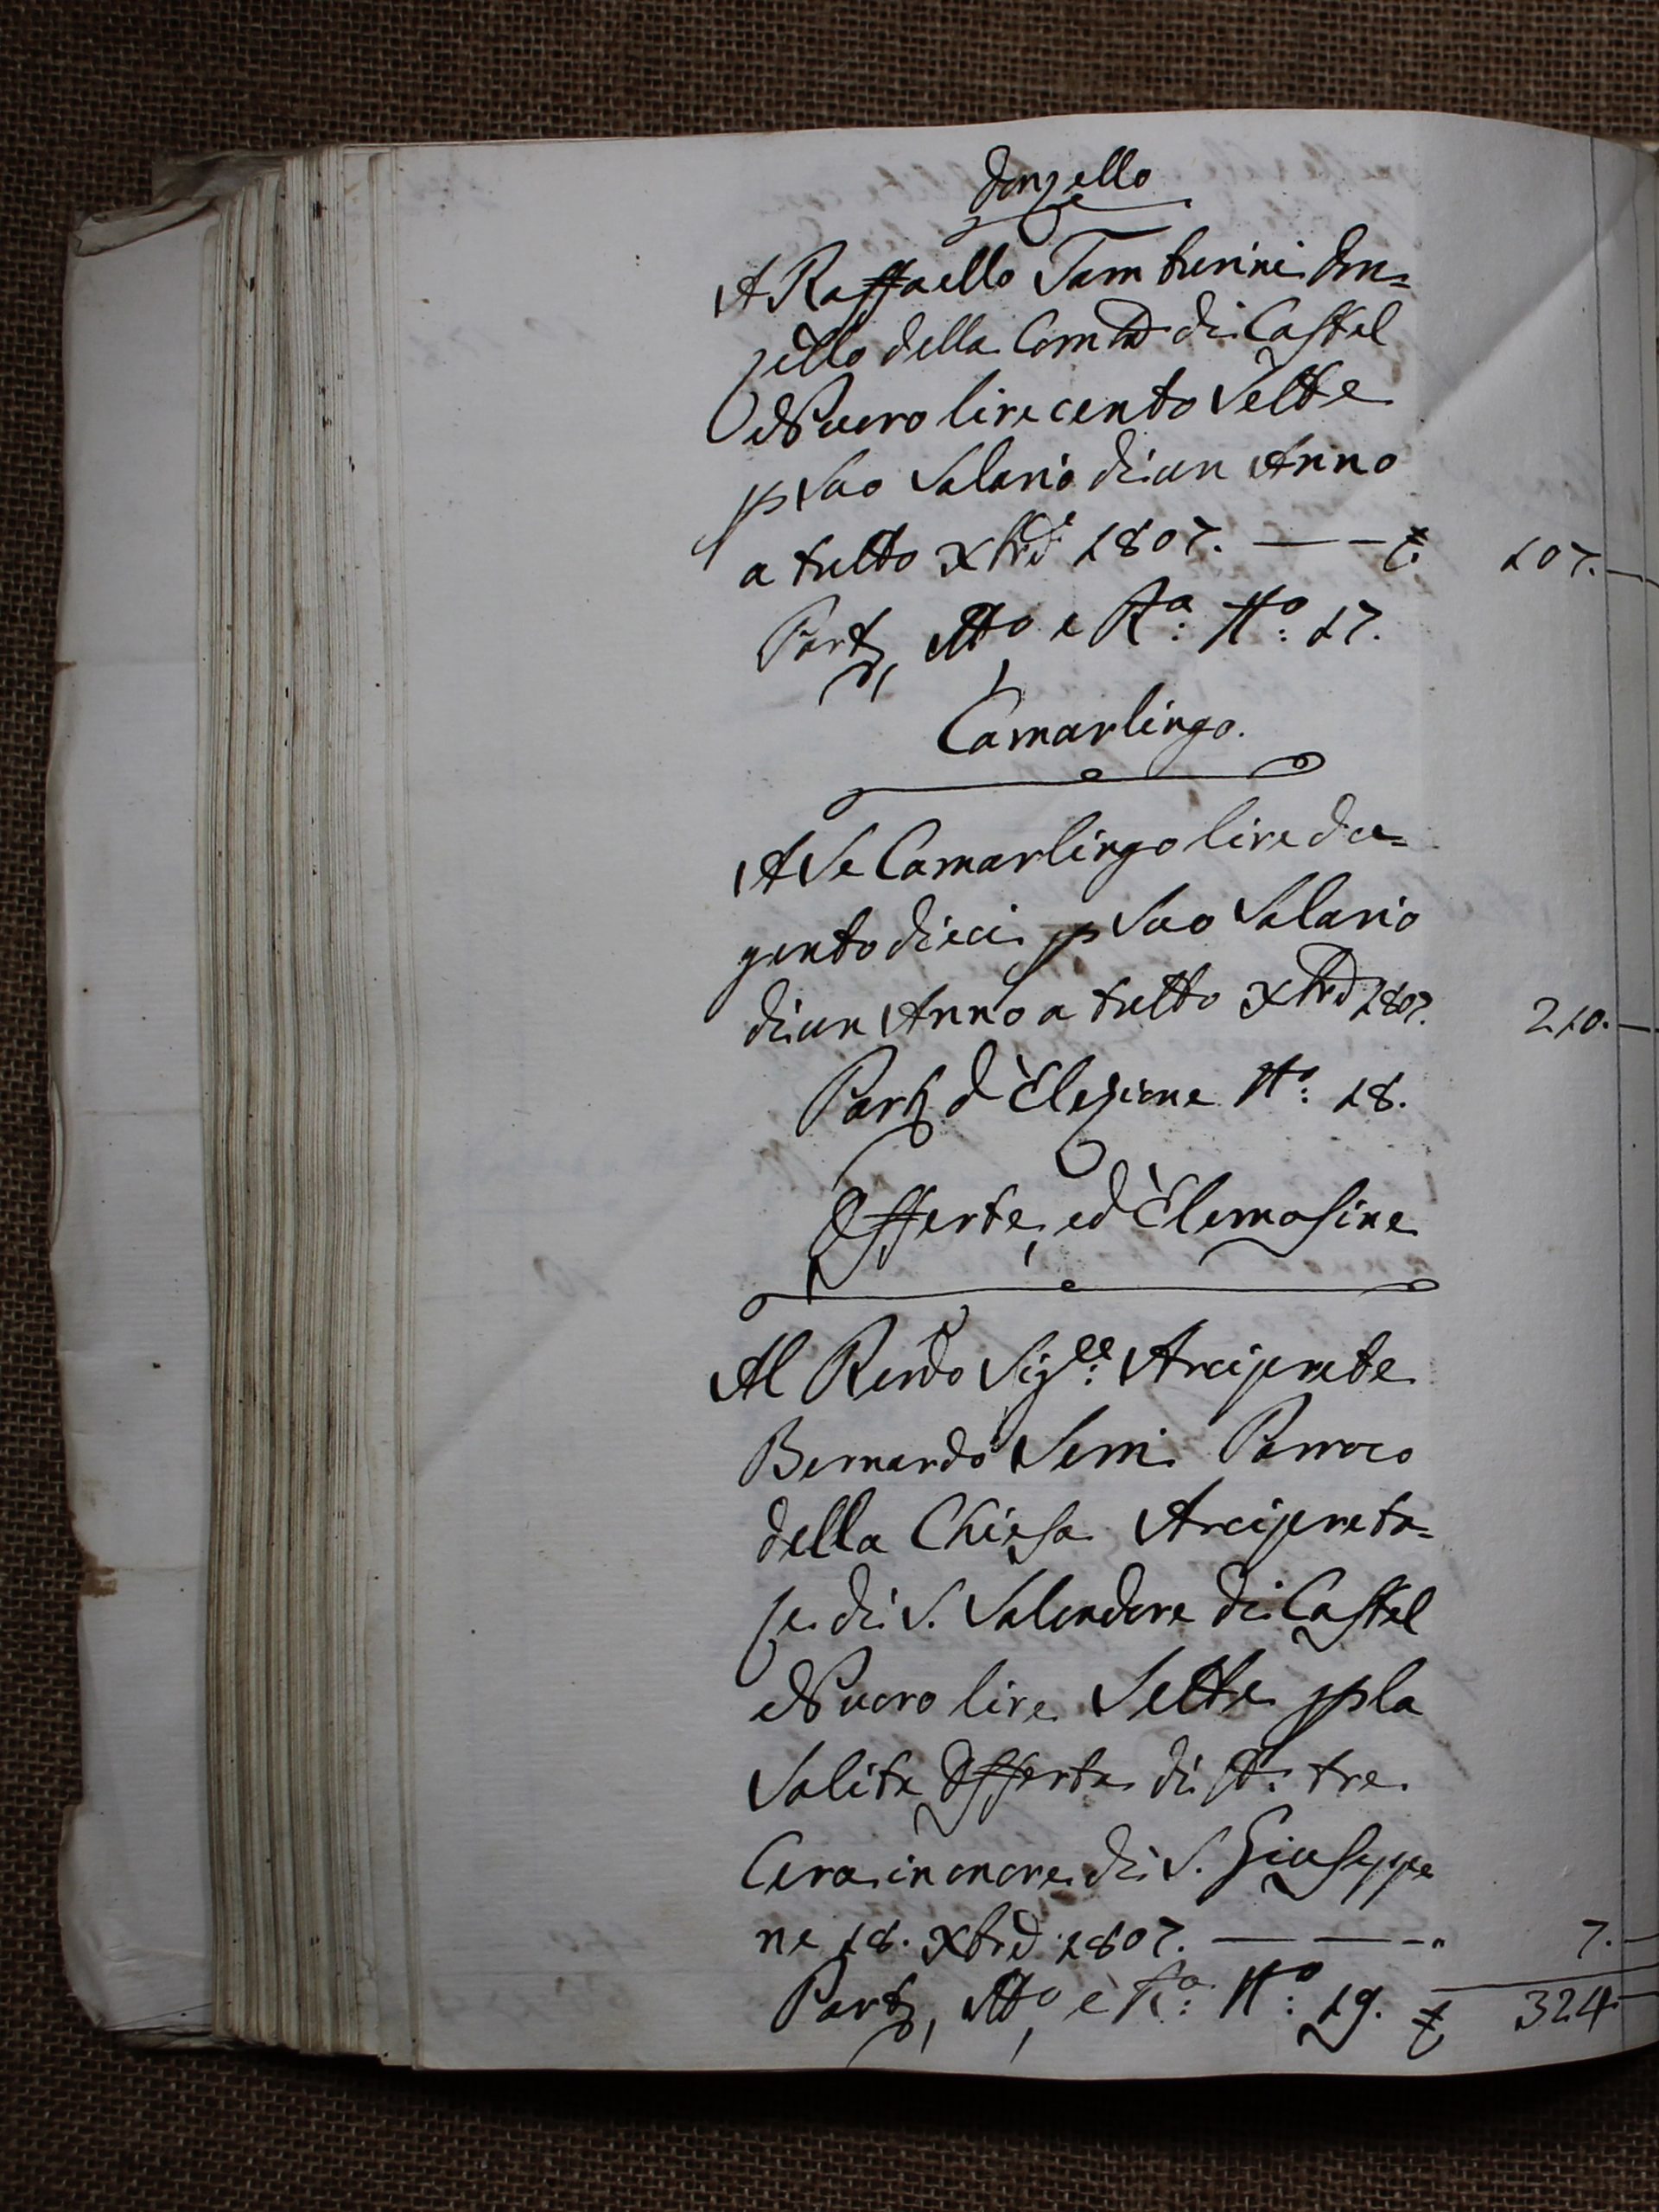 Donzello
A Raffaello Tamburini Don=
zello della Com.tà di Castel
Nuovo lire cento Sette
p Suo Salario di un Anno
a tutto Xbre 1807. — — £. 107.—
Part, Mto e Ra: No: 17.
Camarlingo.
A Se Camarlingo lire du=
gento dieci p Suo Salario
di un Anno a tutto Xbre 1807. 210.—
Part d'Elezione No: 18.
Offerte, ed Elemosine
Al Rendo Sigre: Arciprete
Bernardo Serri Parroco
della Chiesa Arcipreta=
le di S. Salvadore di Castel
Nuovo lire Sette p la
Solita Offerta di tt: tre
Cera in onore di S. Giuseppe
ne 18. Xbre 1807. — — — " 7.—
Part, Mto, e Ra: No: 19. £ 324.—